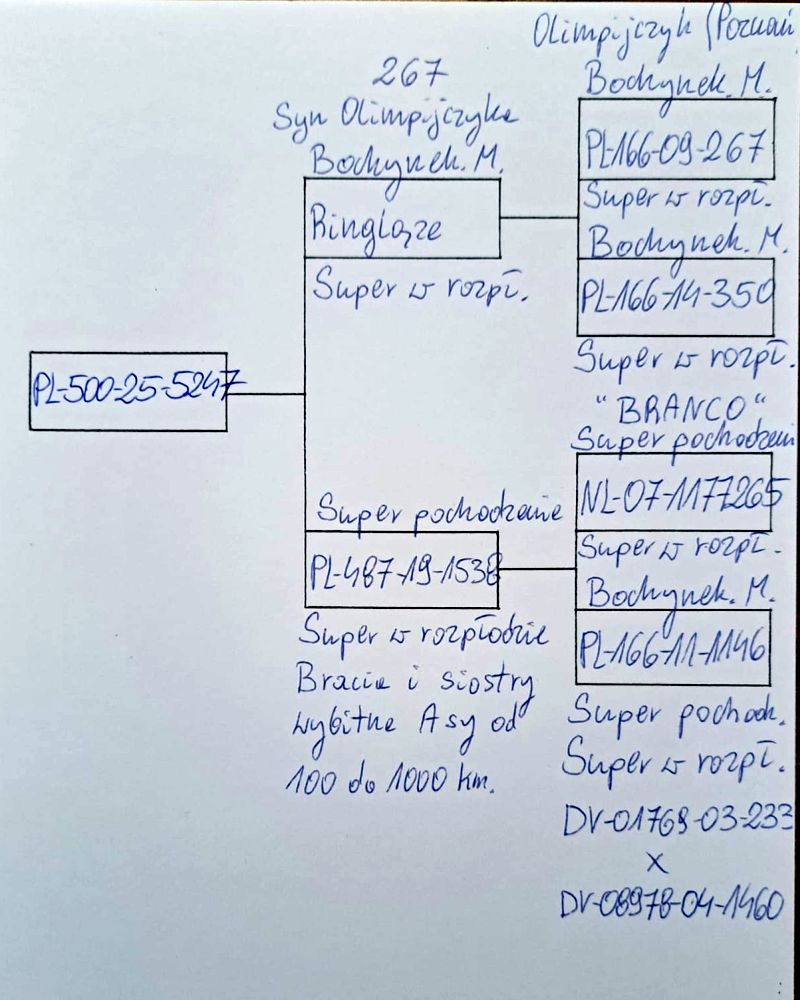 PL-500-25-5247
267
Syn Olimpijczyka
Bochynek. M.
Ringląze
Super w rozpł.
Super pochodzenie
PL-487-19-1538
Super w rozpłodzie
Bracia i siostry
wybitne Asy od
100 do 1000 km.
Olimpijczyk (Poznań
Bochynek. M.
PL-166-09-267
Super w rozpł.
Bochynek. M.
PL-166-14-350
Super w rozpł.
"BRANCO"
Super pochodzeni
NL-07-1177265
Super w rozpł.
Bochynek. M.
PL-166-11-1146
Super pochodz.
Super w rozpł.
DV-01769-03-233
X
DV-08978-04-1460